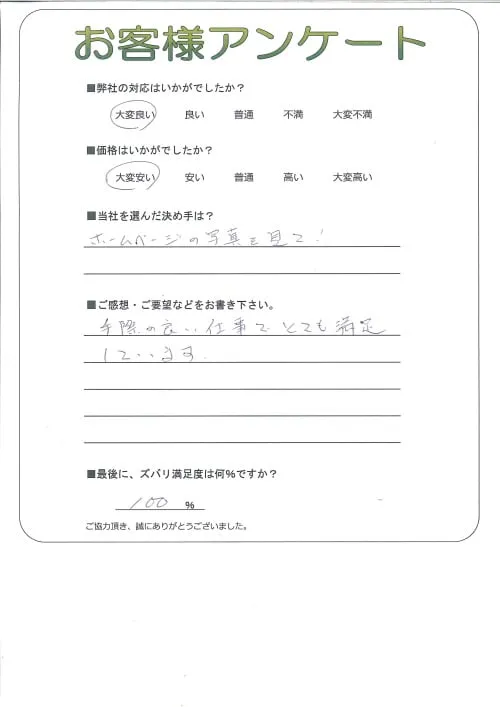 お客様アンケート
■弊社の対応はいかがでしたか？
大変良い 良い 普通 不満 大変不満
■価格はいかがでしたか？
大変安い 安い 普通 高い 大変高い
■当社を選んだ決め手は？
ホームページの写真を見て！
■ご感想・ご要望などをお書き下さい。
手際の良い仕事でとても満足
しています.
■最後に、ズバリ満足度は何%ですか？
100 %
ご協力頂き、誠にありがとうございました。